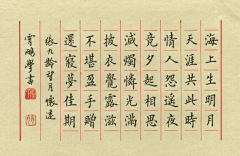 海上生明月
天涯共此時
情人怨遥夜
竟夕起相思
滅燭憐光滿
披衣覺露滋
不堪盈手贈
還寢夢佳期
張九齡望月懷遠
學書